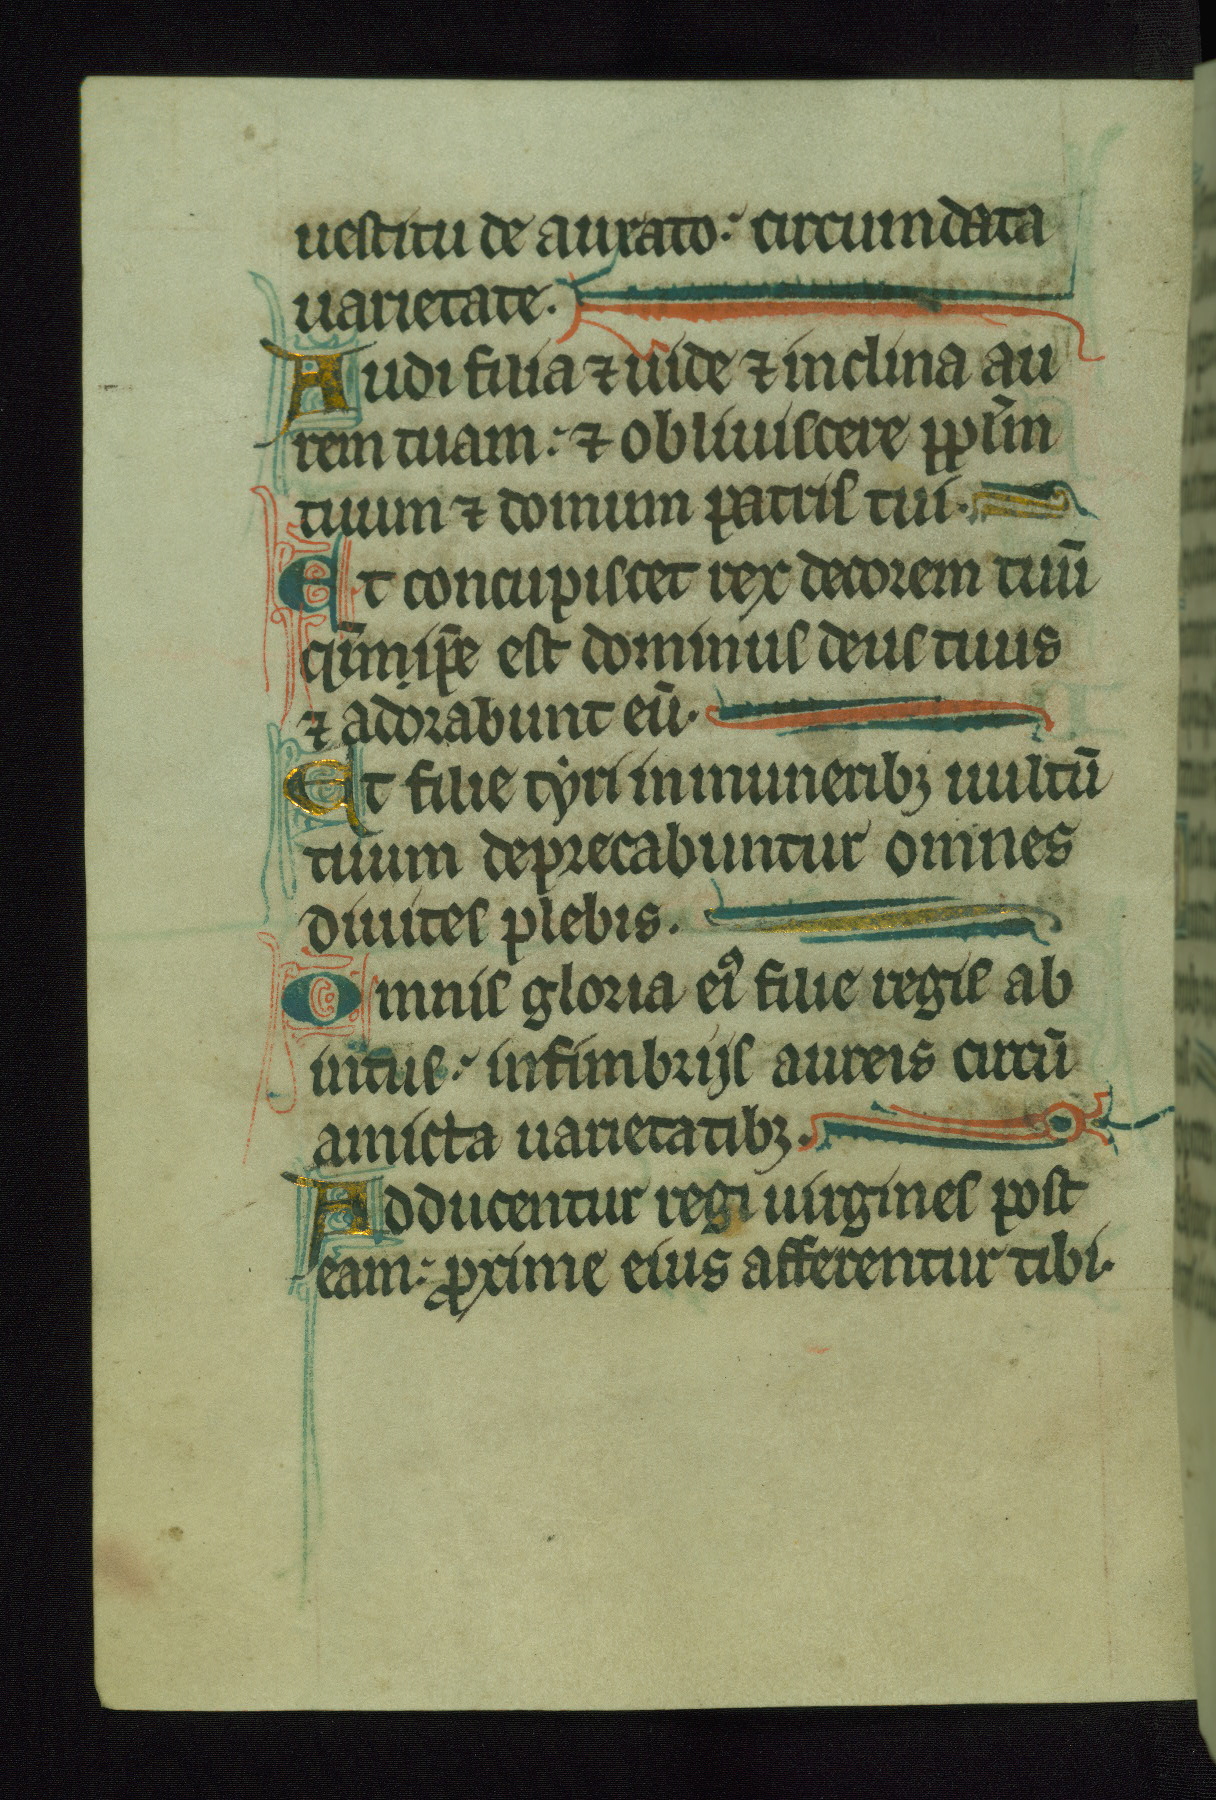 uestitu de aurato: circumdata
uarietate.
Audi filia ⁊ uide ⁊ inclina au
rem tuam: ⁊ obliuiscere ppl̄m
tuum ⁊ domum patris tui.
Et concupiscet rex decorem tuū
qm̄ ip̄e est dominus deus tuus
⁊ adorabunt eū.
Et filie tyri in muneribꝫ uultū
tuum deprecabuntur omnes
diuites plebis.
Omnis gloria eiꝰ filie regis ab
intus: in fimbrijs aureis circū
amicta uarietatibꝫ.
Adducentur regi uirgines post
eam: ꝓxime eius afferentur tibi.